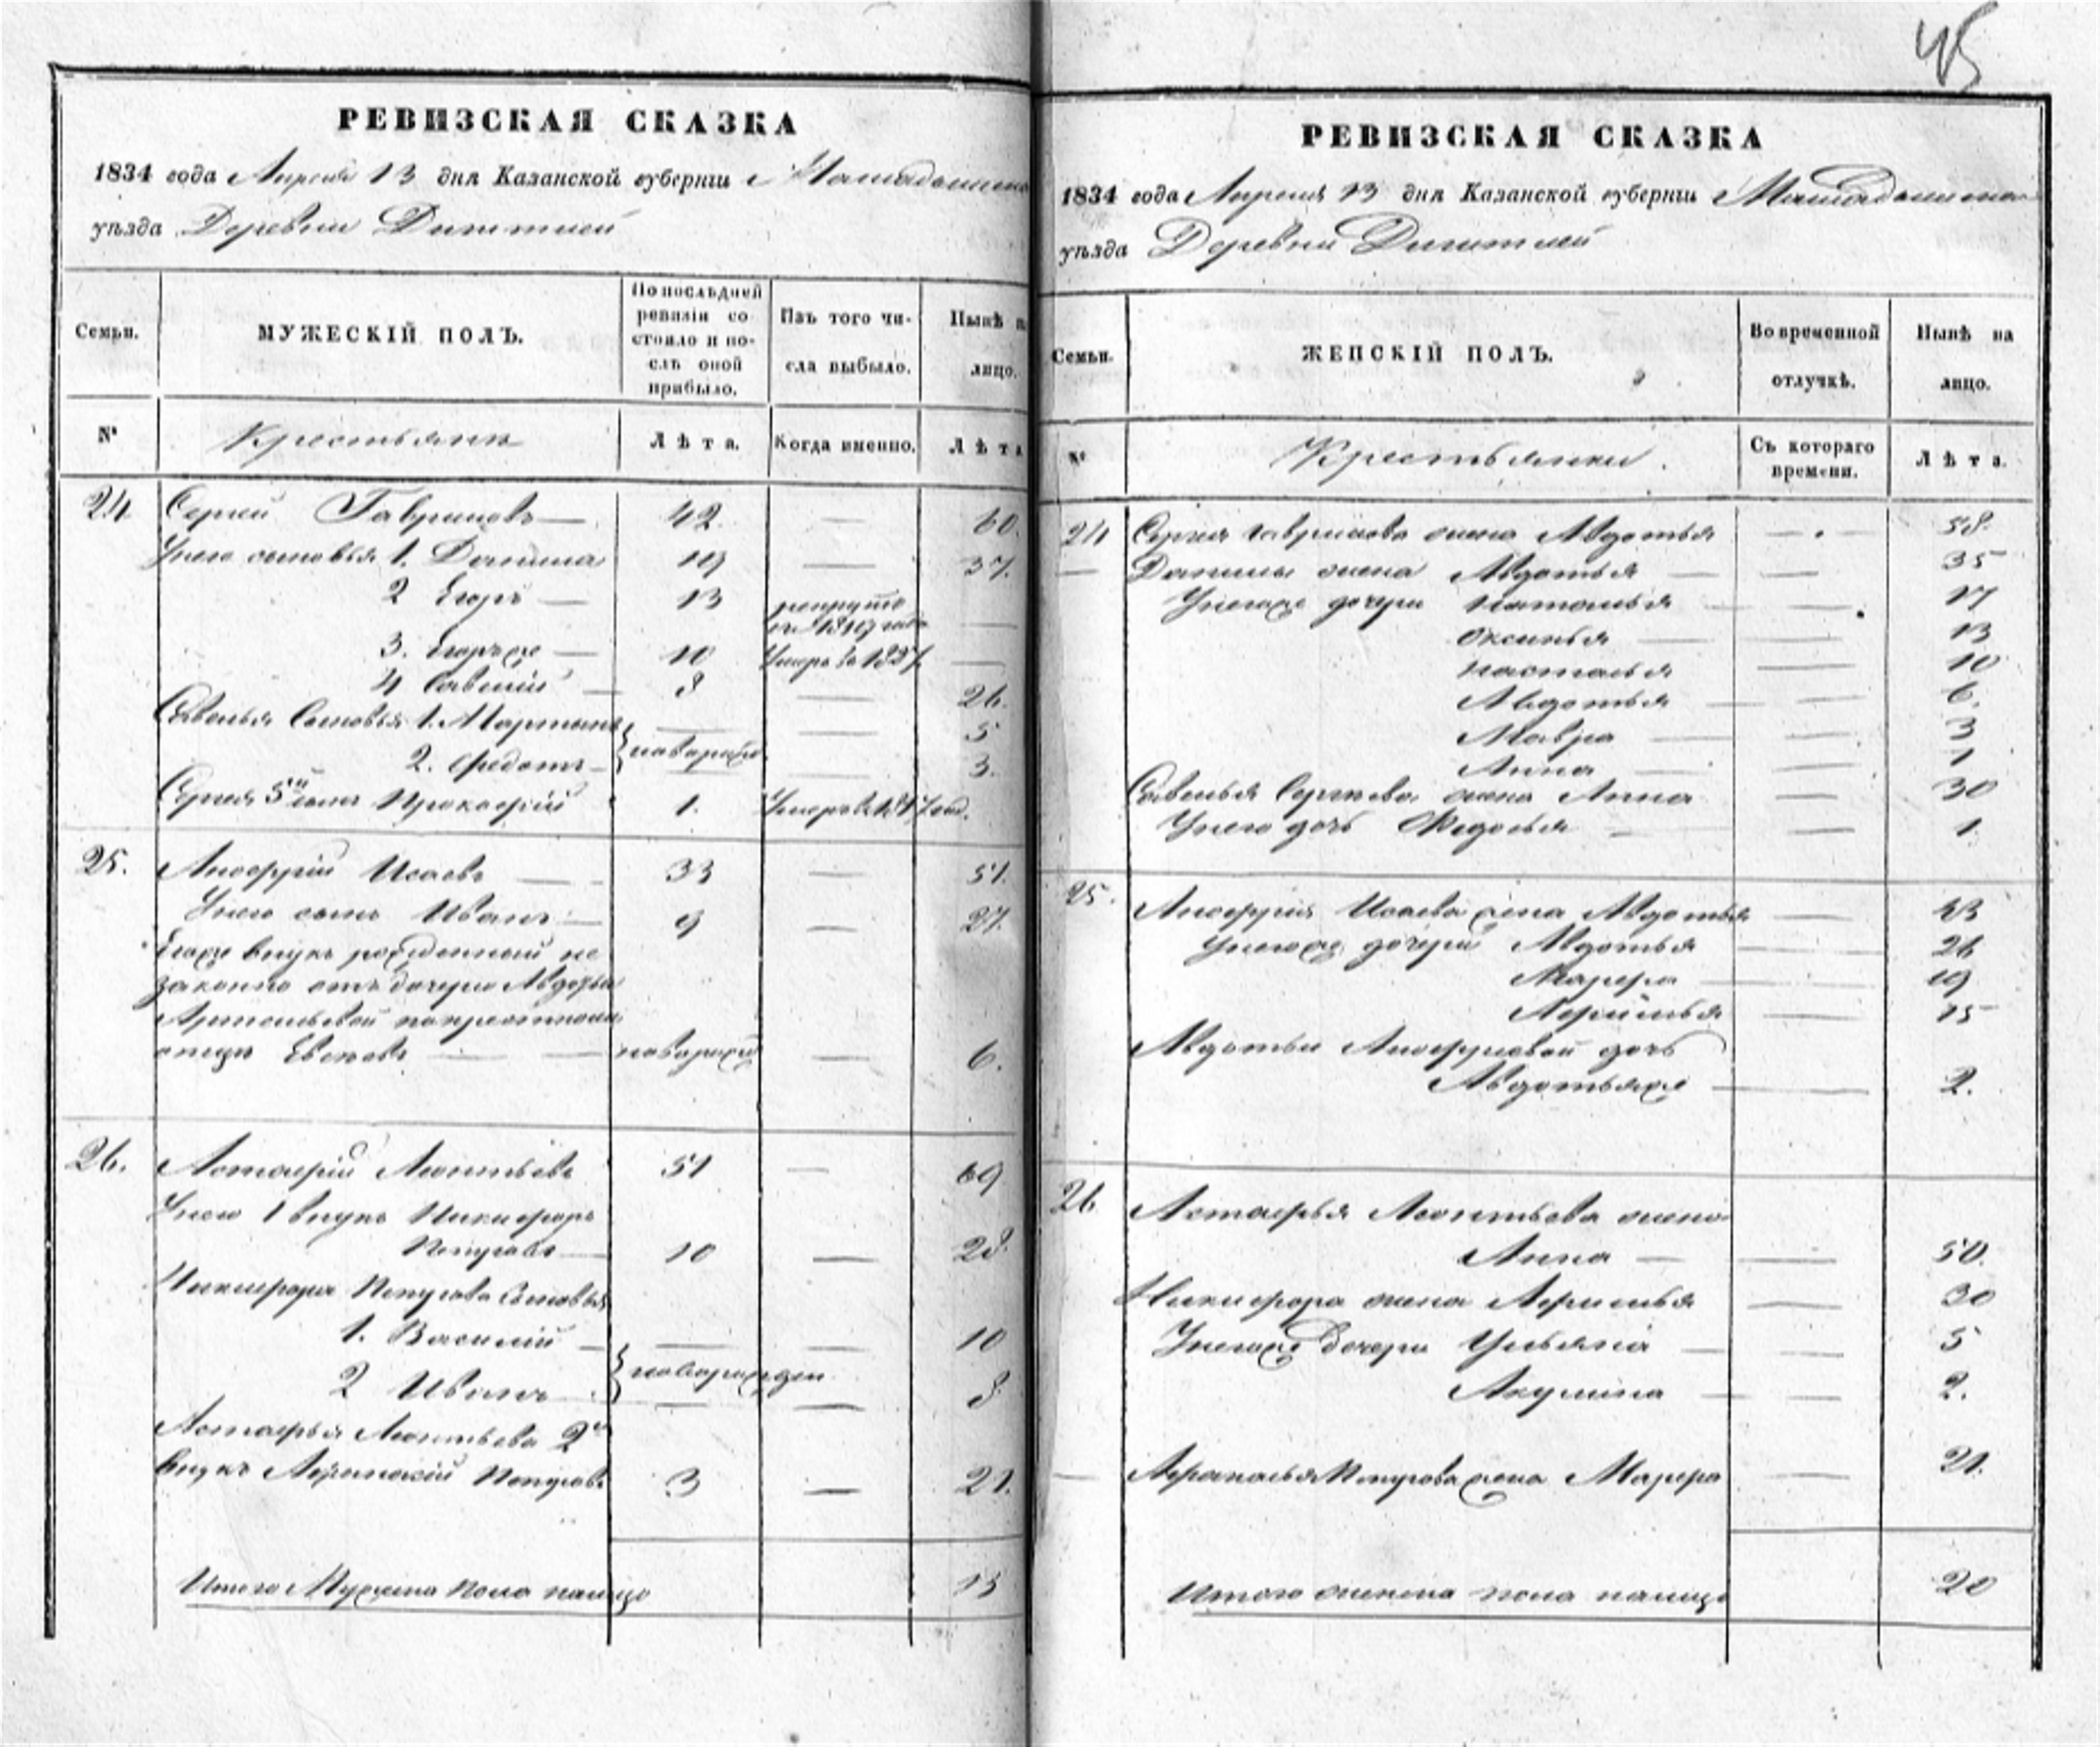 45
РЕВИЗСКАЯ СКАЗКА
1834 года Апреля 13 дня Казанской губернiи Мамадышскаго
уѣзда Деревни
Семьи.
МУЖЕСКIЙ ПОЛЪ.
По послѣдней ревизiи состояло и послѣ оной прибыло.
Изъ того числа выбыло.
Нынѣ на лицо.
№
Крестьяне
Лѣта.
Когда именно.
Лѣта
24 Сергей Гавриловъ — 42. — 60.
У него сыновья 1. Данила 19 — 37.
2 Егоръ — 13 рекруто въ 1819 года —
3. Егоръ же — 10 Умеръ въ 1827. —
4 Савелiй — 8 — 26.
Савелья Сыновья 1. Мартынъ — — 5
новорож
2. Федотъ — — 3.
Сергея 5й сынъ Прокофiй 1. Умеръ въ год.
25. Ануфрiй Исаевъ — 33 — 51.
У него сынъ Иванъ — 9 — 27.
Егоже внукъ рожденный не
законно отъ дочери Авдотьи
по крестному
отцу новорож — 6.
26. Астафiй Леонтьевъ 51 — 69
У него 1 внукъ Никифоръ
Петровъ — 10 — 28.
Никифора Петрова Сыновья
1. Василiй — — — 10
новорожден
2 Иванъ — — 8
Астафья Леонтьева 2й
внукъ Афанасiй Петровъ 3 — 21.
Итого Мужеска пола налицо 13
РЕВИЗСКАЯ СКАЗКА
1834 года Апреля 13 дня Казанской губернiи Мамадышскаго
уѣзда Деревни
Семьи.
ЖЕНСКIЙ ПОЛЪ.
Во временной отлучкѣ.
Нынѣ на лицо.
№
Крестьянки.
Съ котораго времени.
Лѣта.
24 Сергея Гаврилова жена Авдотья — 58.
— Данилы жена Авдотья — — 35
У него же дочери Наталья — — 17
Оксинья — — 13
Настасья — 10
Авдотья — — 6.
Мавра — — 3
Анна — — 1
Савелья Сергѣева жена Анна — 30
У него дочь Федосья — — 1.
25. Ануфрiя Исаева жена Авдотья — 43
У него же дочери Авдотья — 26
Марфа — 19
— 15
Авдотьи Ануфрiевой дочь
Авдотья же — — 2.
26 Астафья Леонтьева жена
Анна — — 50.
Никифора жена — 30
У него же дочери Ульяна — — 5
Акулина — — 2.
— Афанасья Петрова жена Марфа — 21.
Итого женска пола налицо 20